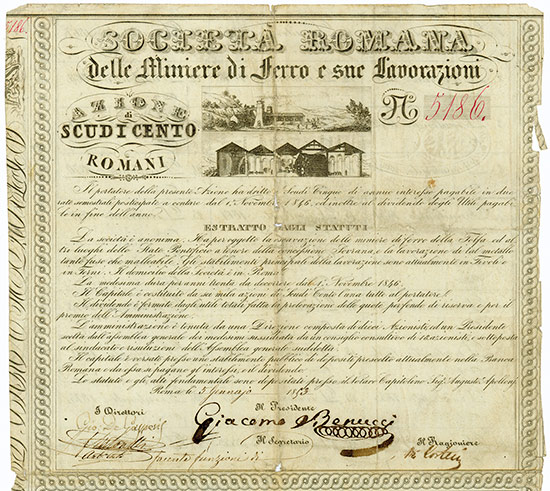 5186.
SOCIETÀ ROMANA
delle Miniere di Ferro e sue Lavorazioni
AZIONE
di
SCUDI CENTO
ROMANI
N. 5186.
Il portatore della presente Azione ha dritto a Scudi Cinque di annuo interesse pagabile in due
rate semestrali posticipate a contare dal 1.° Novembre 1846, ed inoltre al dividendo degli Utili pagabi-
le in fine dell'anno.
ESTRATTO DAGLI STATUTI
La società è anonima. Ha per oggetto la escavazione delle miniere di ferro della Tolfa ed al-
tri luoghi dello Stato Pontificio a tenore della concessione Sovrana, e la lavorazione di tal metallo
tanto fuso che malleabile. Gli stabilimenti principali della lavorazione sono attualmente in Tivoli e
in Terni. Il domicilio della Società è in Roma.
La medesima dura per anni trenta da decorrere dal 1.° Novembre 1846.
Il Capitale è costituito da sei mila azioni di Scudi Cento l'una tutte al portatore.
Il dividendo è formato dagli utili totali fatta la prelevazione delle quote per fondo di reserva e per il
premio dell'Amministrazione.
L'amministrazione è tenuta da una Direzione composta di dieci Azionisti, ed un Presidente
scelta dall'assemblea generale dei medesimi sussidiata da un consiglio consultivo di azionisti, e sottoposta
al sindicato e risoluzioni della Assemblea generale suddetta.
Il capitale è versato presso uno stabilimento pubblico di depositi prescelto attualmente nella Banca
Romana e da essa si pagano gl'interessi, e il dividendo.
Lo statuto e gli altri fondamentali sono depositate presso il Notaro Capitolino Sig. Augusto Apolloni
Roma li 5 Gennaio 1853
I Direttori
Il Presidente
Giacomo Benucci
Il Segretario
Il Ragioniere
facente funzioni di